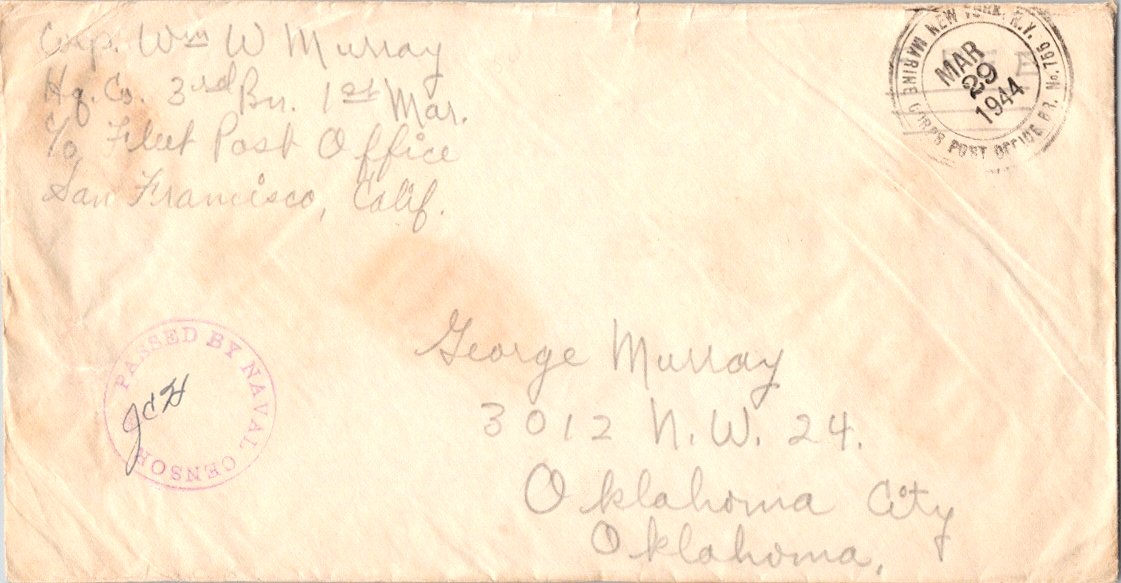 Corp. Wm W Murray
Hq. Co. 3rd Bn. 1st Mar.
c/o, Fleet Post Office
San Francisco, Calif.
MARINE CORPS POST OFFICE BR. No. 755 NEW YORK, N.Y.
MAR
29
1944
PASSED BY NAVAL CENSOR
JCH
George Murray
3012 N.W. 24.
Oklahoma City
Oklahoma.